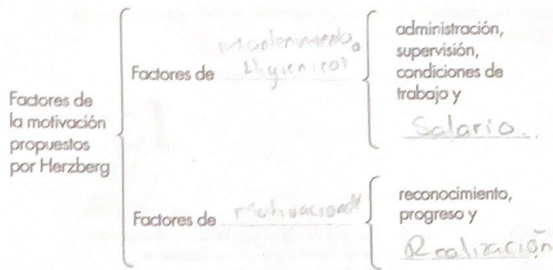 Factores de
la motivación
propuestos
por Herzberg
Factores de
Mantenimiento o
Higienicos
administración,
supervisión,
condiciones de
trabajo y
Salario.
Factores de
Motivacional
reconocimiento,
progreso y
Realización